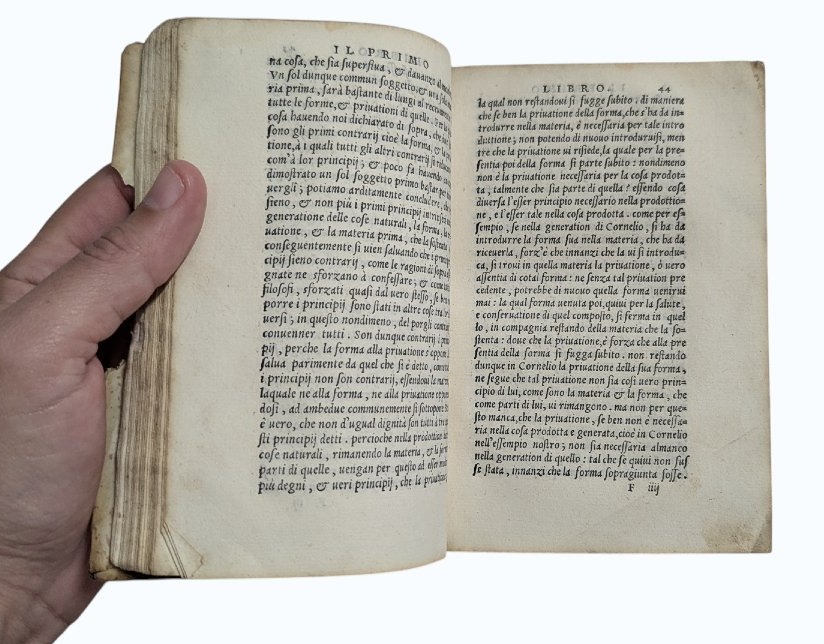 IL PRIMO
na cosa, che sia superflua, & dauanzo al
Vn sol dunque commun soggetto, & una sola
ria prima, sarà bastante di lungi al
tutte le forme, & priuationi di quelle.
cosa hauendo noi dichiarato di sopra, che
sono gli primi contrarij cioè la forma, & la
tione, à i quali tutti gli altri contrarij si
com'à lor principij; & poco fa hauendo
dimostrato un sol soggetto primo bastar per
uergli; potiamo arditamente concludere, che
sieno, & non più i primi principij
generatione delle cose naturali, la forma, la
uatione, & la materia prima, che la sostenta
conseguentemente si uien saluando che i princi
cipij sieno contrarij, come le ragioni di sopra
gnate ne sforzano à confessare; & come
filosofi, sforzati quasi dal uero stesso, se ben
porre i principij sono stati in altre cose tra lor
uersi; in questo nondimeno, del porgli contrarij
conuenner tutti. Son dunque contrarij i princi
pij, perche la forma alla priuatione s'oppone:
salua parimente da quel che si è detto, come
i principij non son contrarij, essendoui la materia
laquale ne alla forma, ne alla priuatione
dosi, ad ambedue communemente si sottopone
è uero, che non d'ugual dignità son tutti tre
sti principij detti. percioche nella produttion
cose naturali, rimanendo la materia, & la forma
parti di quelle, uengan per questo ad esser
più degni, & ueri principij, che la priuatione,
LIBRO. 44
la qual non restandoui si fugge subito. di maniera
che se ben la priuatione della forma, che s'ha da in
trodurre nella materia, è necessaria per tale intro
duttione; non potendo di nuouo introduruisi, men
tre che la priuatione ui risiede, la quale per la pre
sentia poi della forma si parte subito: nondimeno
non è la priuatione necessaria per la cosa prodot
ta; talmente che sia parte di quella: essendo cosa
diuersa l'esser principio necessario nella produttio
ne, e l'esser tale nella cosa prodotta. come per es=
sempio, se nella generation di Cornelio, si ha da
introdurre la forma sua nella materia, che ha da
riceuerla, forz'è che innanzi che la ui si introdu=
ca, si troui in quella materia la priuatione, ò uero
assentia di cotal forma: ne senza tal priuation pre
cedente, potrebbe di nuouo quella forma uenirui
mai: la qual forma uenuta poi, quiui per la salute,
e conseruatione di quel composto, si ferma in quel
lo, in compagnia restando della materia che la so=
stenta: doue che la priuatione, è forza che alla pre
sentia della forma si fugga subito. non restando
dunque in Cornelio la priuatione della sua forma,
ne segue che tal priuatione non sia così uero prin=
cipio di lui, come sono la materia & la forma, che
come parti di lui, ui rimangono. ma non per que=
sto manca, che la priuatione, se ben non è necessa=
ria nella cosa prodotta e generata, cioè in Cornelio
nell'essempio nostro; non sia necessaria almanco
nella generation di quello: tal che se quiui non fus
se stata, innanzi che la forma sopragiunta fosse.
F iiij